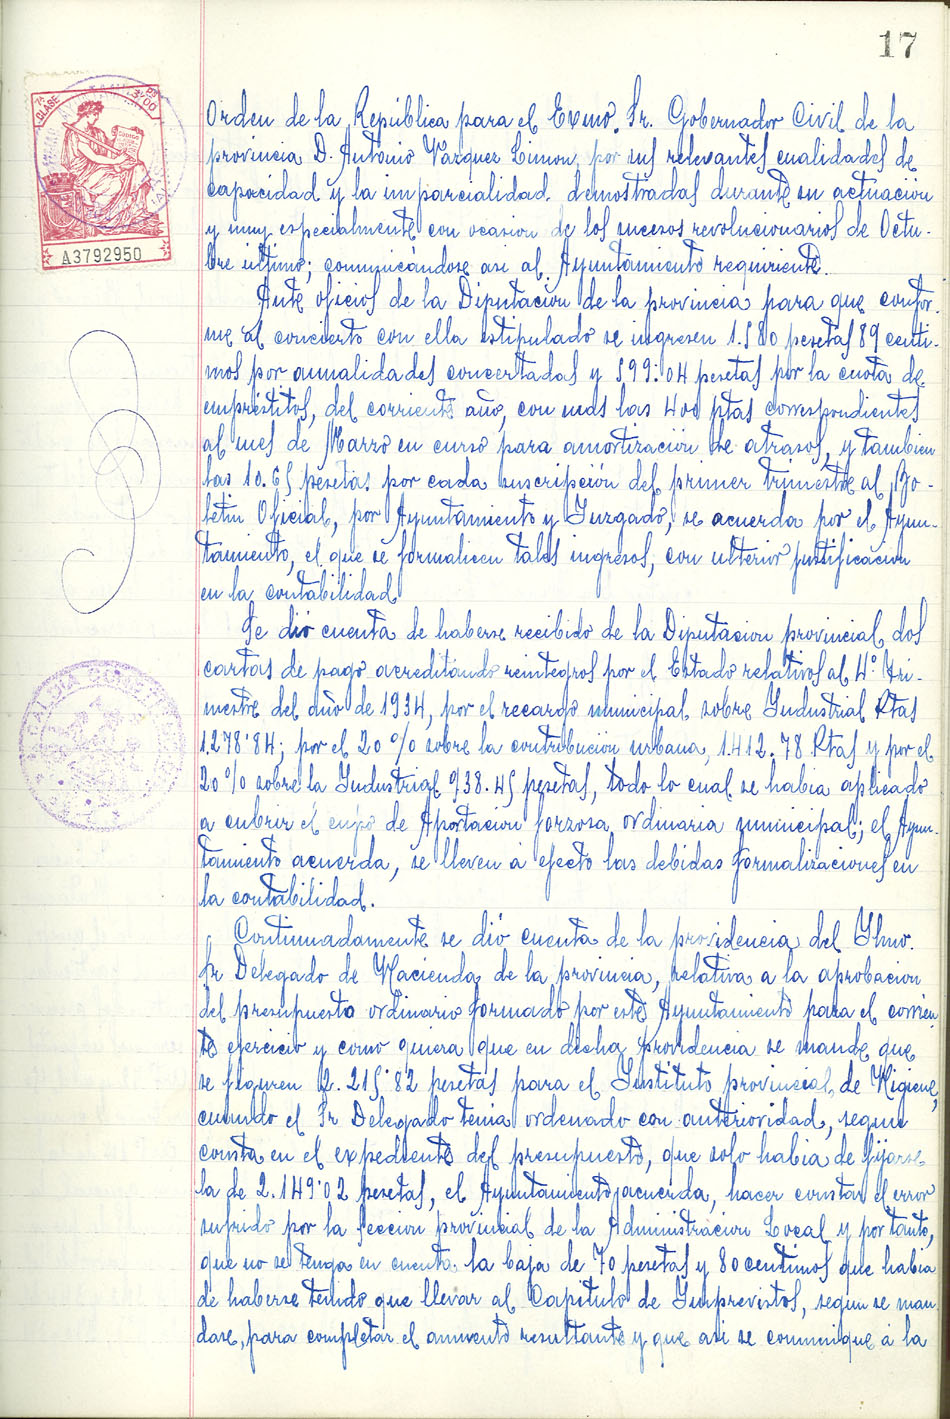 17
7ª CLASE
3'00 Pts
A3792950
Orden de la República para el Exmo. Sr. Gobernador Civil de la
provincia D. Antonio Vazquez Limon, por sus relevantes cualidades de
capacidad y la imparcialidad demostradas durante su actuacion
y muy especialmente con ocasion de los sucesos revolucionarios de Octu-
bre ultimo; comunicándose asi al Ayuntamiento requiriente.
Ante oficios de la Diputacion de la provincia para que confor-
me al concierto con ella estipulado se ingresen 1.580 pesetas 89 centi-
mos por anualidades concertadas y 599'04 pesetas por la cuota de
empréstitos, del corriente año, con mas las 400 ptas correspondientes
al mes de Marzo en curso para amortización de atrasos, y tambien
las 10.65 pesetas por cada suscripción del primer trimestre al Bo-
letin Oficial, por Ayuntamiento y Juzgado, se acuerda por el Ayun-
tamiento, el que se formalicen tales ingresos, con ulterior justificacion
en la contabilidad
Se dió cuenta de haberse recibido de la Diputacion provincial dos
cartas de pago acreditando reintegros por el Estado relativos al 4º tri-
mestre del año de 1934, por el recargo municipal sobre Industrial Ptas
1.278'84; por el 20 % sobre la contribucion urbana, 1.412.78 Ptas y por el
20 % sobre la Industrial 938.45 pesetas, todo lo cual se habia aplicado
a cubrir el cupo de Aportacion forzosa ordinaria municipal; el Ayun-
tamiento acuerda, se lleven á efecto las debidas formalizaciones en
la contabilidad.
Continuadamente se dió cuenta de la providencia del Ylmo.
Sr Delegado de Hacienda de la provincia, relativa a la aprobacion
del presupuesto ordinario formado por este Ayuntamiento para el corrien
te ejercicio y como quiera que en dicha providencia se mande que
se figuren 2.215'82 pesetas para el Instituto provincial de Higiene,
cuando el Sr Delegado tenia ordenado con anterioridad, segun
consta en el expediente del presupuesto, que solo habia de fijarse
la de 2.149'02 pesetas, el Ayuntamiento acuerda, hacer constar el error
sufrido por la Seccion provincial de la Administracion Local y por tanto,
que no se tenga en cuenta la baja de 70 pesetas y 80 centimos que habia
de haberse tenido que llevar al Capitulo de Imprevistos, segun se man
dase, para completar el aumento resultante y que asi se comunique á la